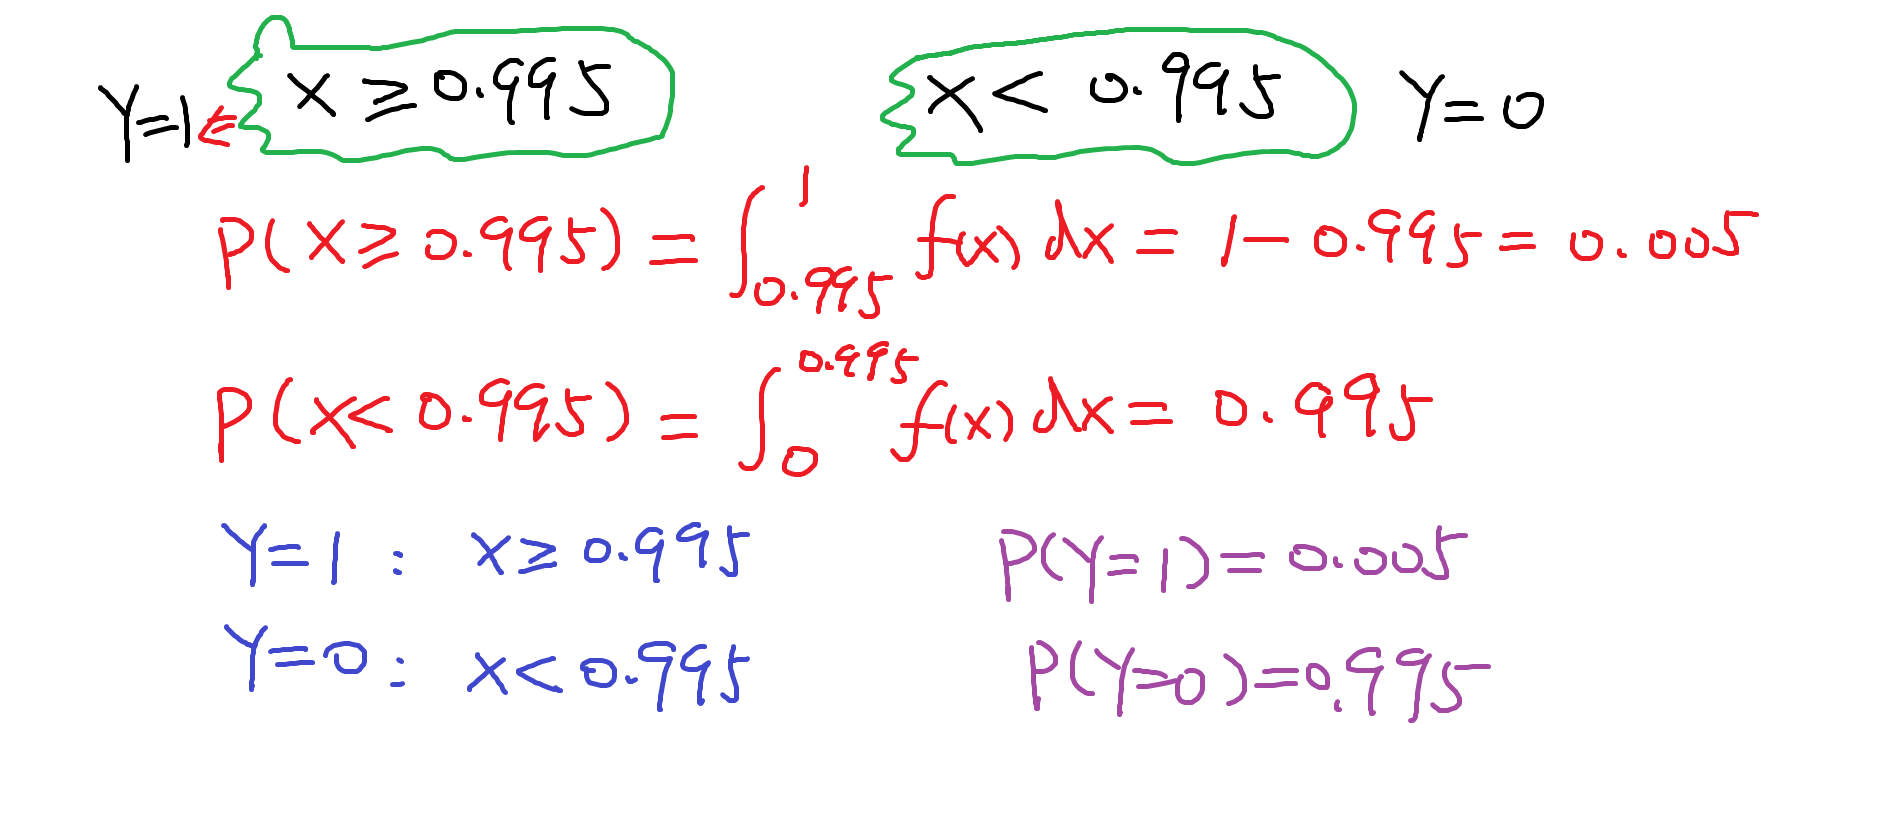 Y=1 ⇐ X ≥ 0.995 X < 0.995 Y=0
P(X ≥ 0.995) = ∫_{0.995}^{1} f(x) dx = 1 − 0.995 = 0.005
P(X < 0.995) = ∫_{0}^{0.995} f(x) dx = 0.995
Y=1 : X ≥ 0.995 P(Y=1) = 0.005
Y=0 : X < 0.995 P(Y=0) = 0.995